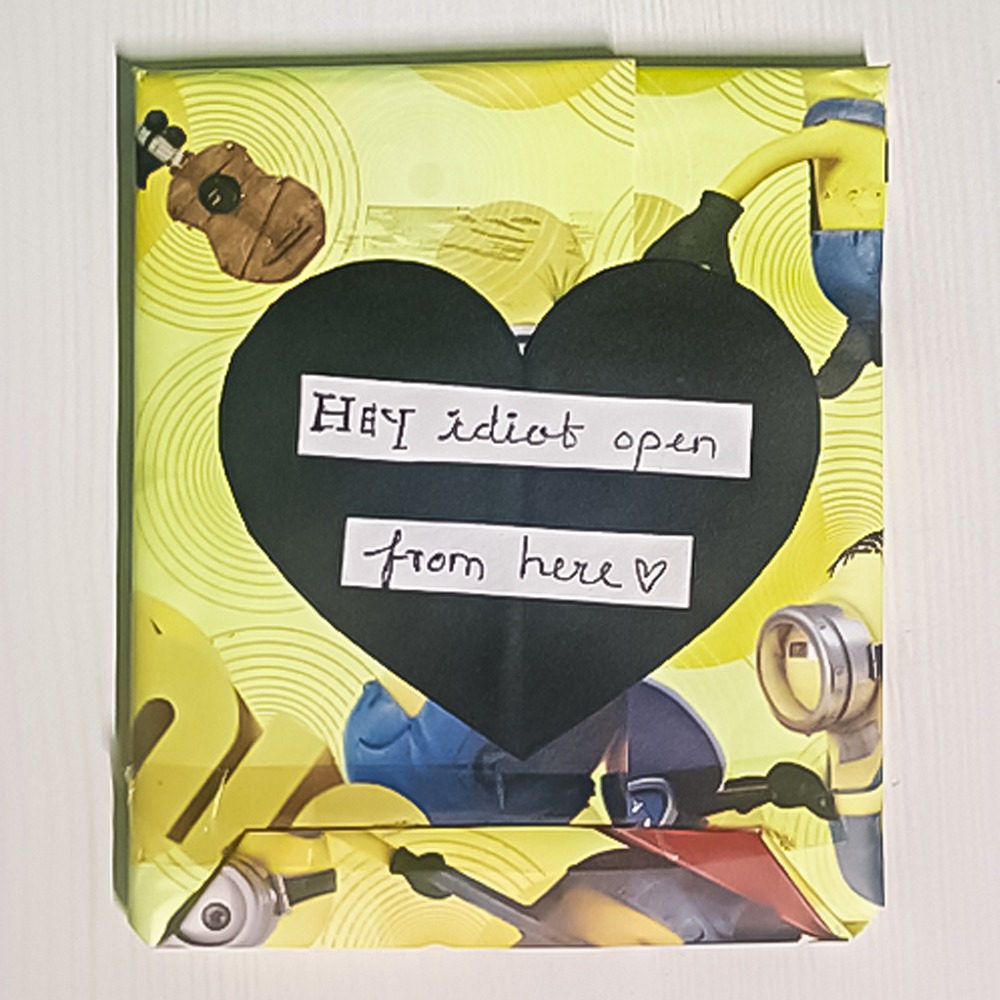 HEY idiot open
from here ♡